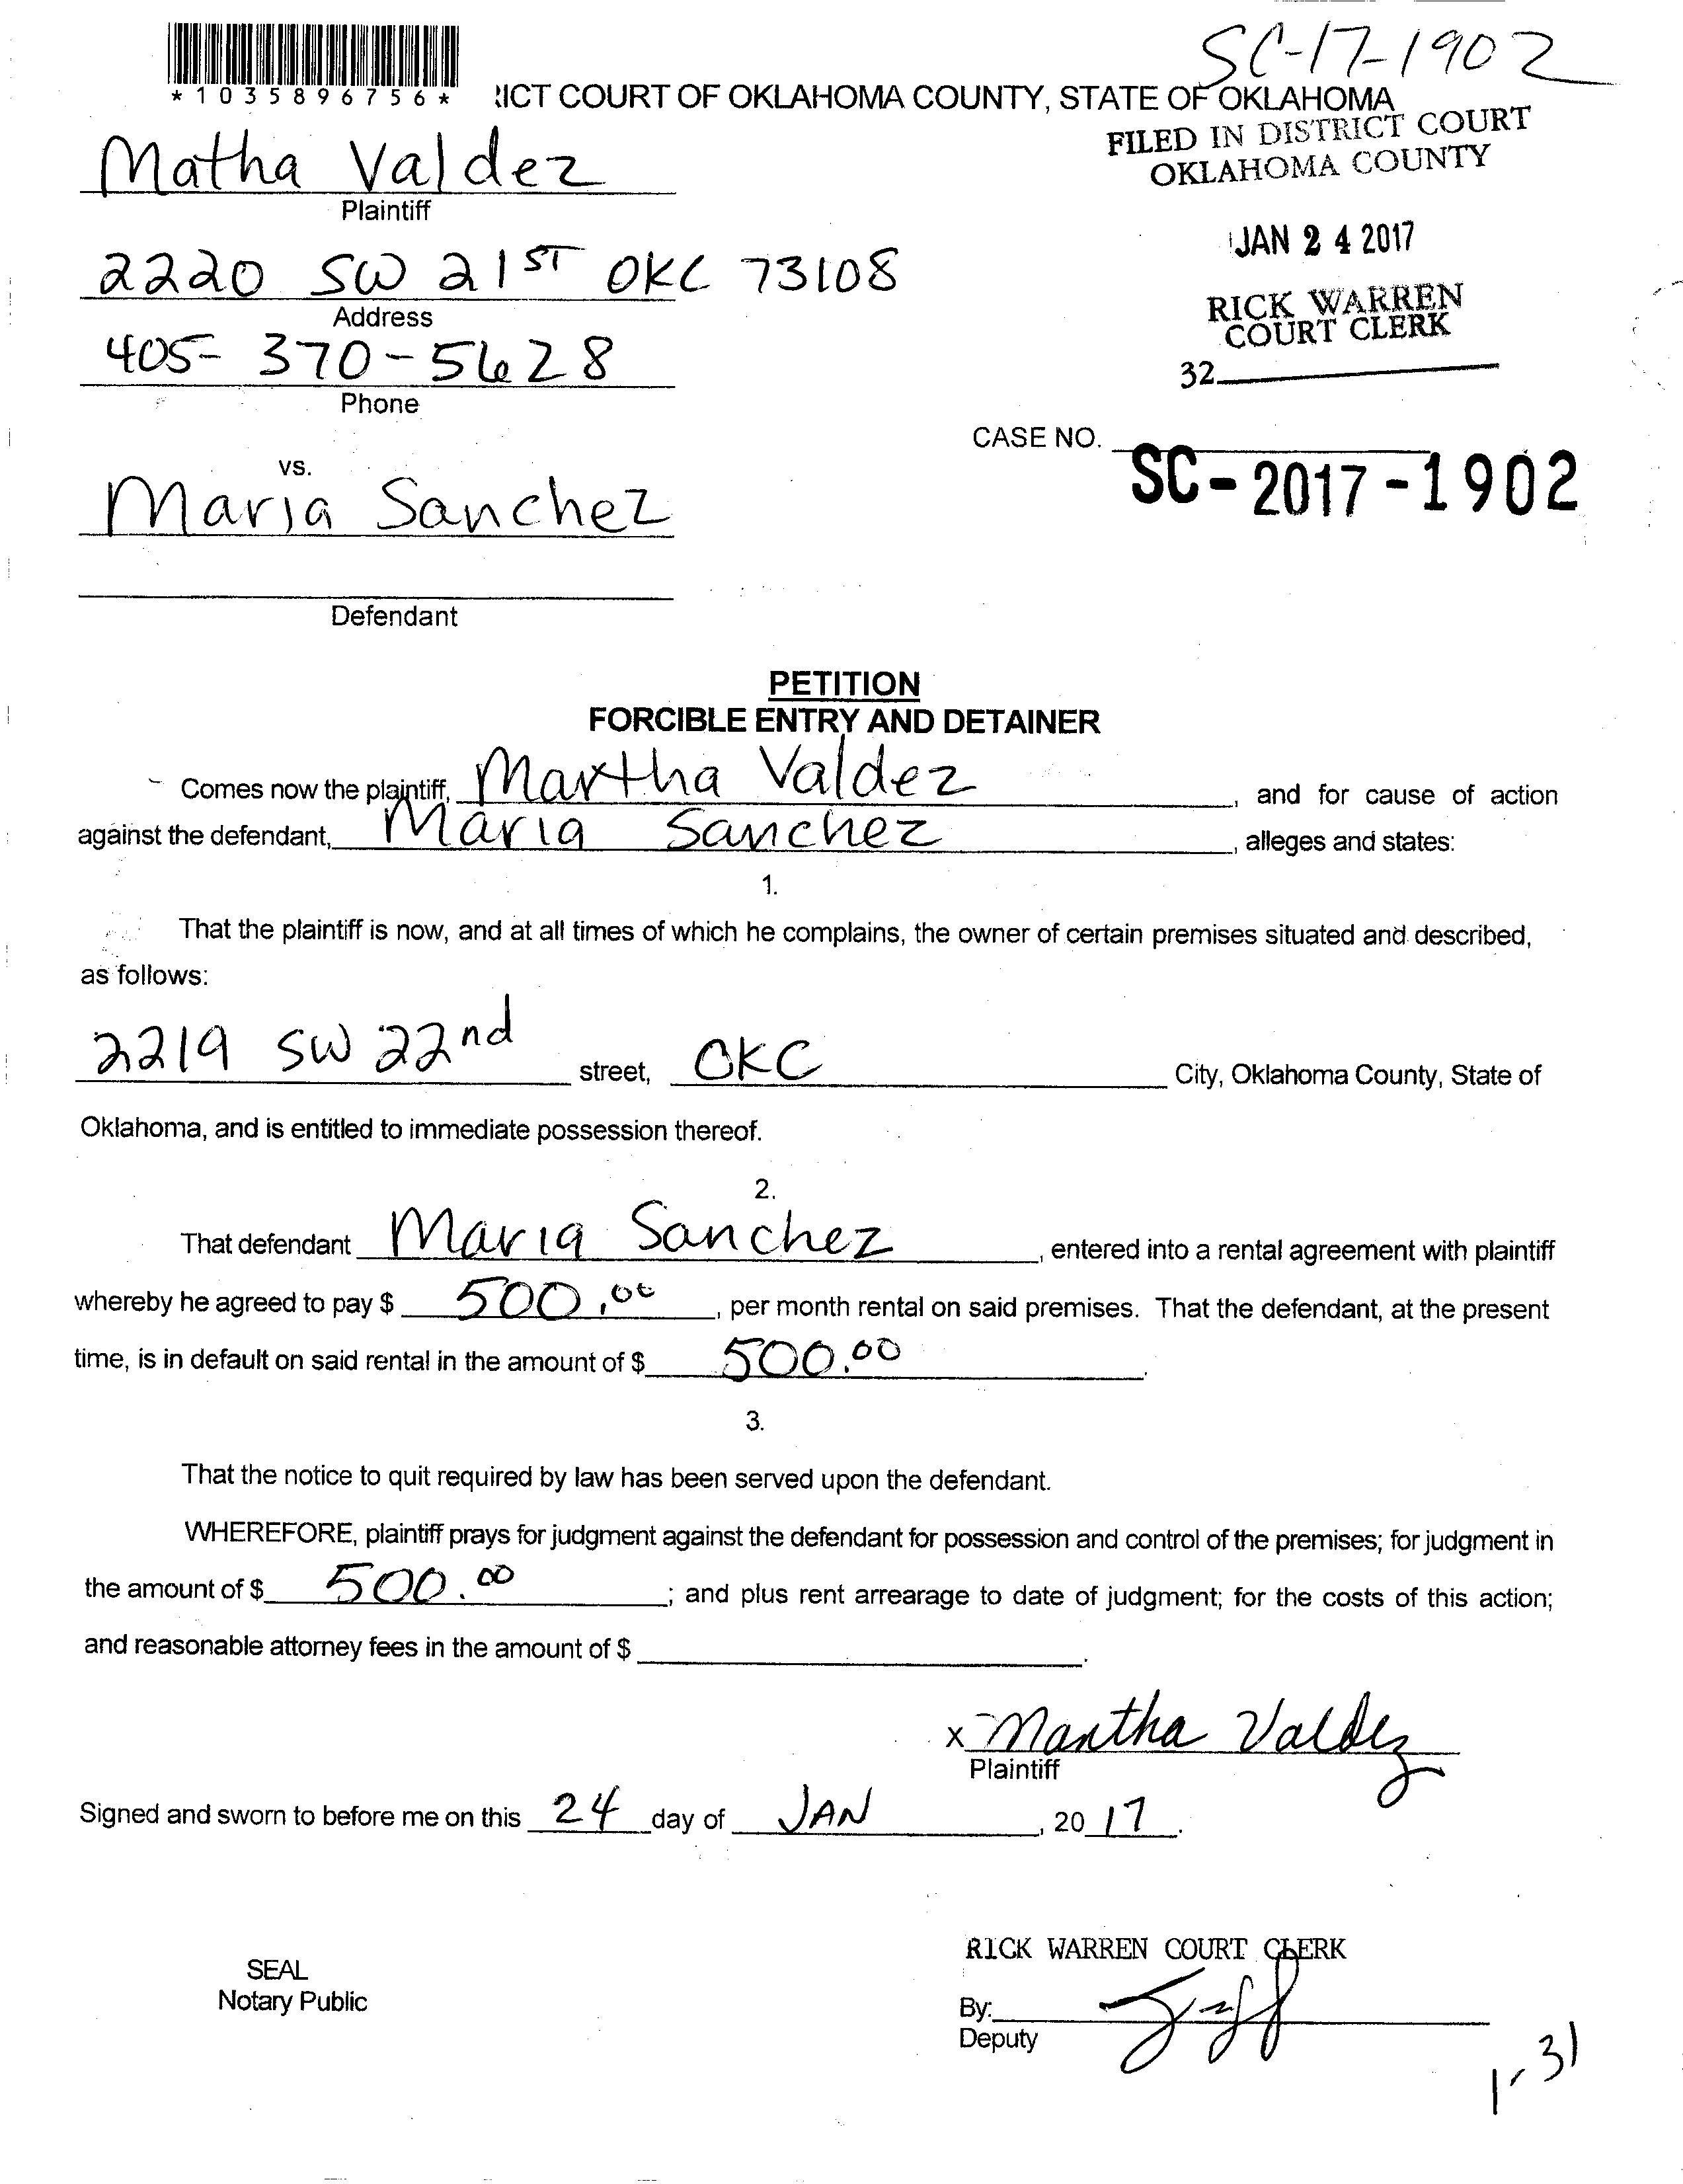 SC-17-1902
*1035896756*
ICT COURT OF OKLAHOMA COUNTY, STATE OF OKLAHOMA
FILED IN DISTRICT COURT
OKLAHOMA COUNTY
Matha Valdez
Plaintiff
JAN 24 2017
2220 SW 21ST OKC 73108
Address
RICK WARREN
COURT CLERK
405-370-5628
Phone
32
CASE NO.
SC-2017-1902
vs.
Maria Sanchez
Defendant
PETITION
FORCIBLE ENTRY AND DETAINER
Comes now the plaintiff, Martha Valdez, and for cause of action
against the defendant, Maria Sanchez, alleges and states:
1.
That the plaintiff is now, and at all times of which he complains, the owner of certain premises situated and described,
as follows:
2219 SW 22nd street, OKC City, Oklahoma County, State of
Oklahoma, and is entitled to immediate possession thereof.
2.
That defendant Maria Sanchez, entered into a rental agreement with plaintiff
whereby he agreed to pay $ 500.00, per month rental on said premises. That the defendant, at the present
time, is in default on said rental in the amount of $ 500.00.
3.
That the notice to quit required by law has been served upon the defendant.
WHEREFORE, plaintiff prays for judgment against the defendant for possession and control of the premises; for judgment in
the amount of $ 500.00; and plus rent arrearage to date of judgment; for the costs of this action;
and reasonable attorney fees in the amount of $ .
x Martha Valdez
Plaintiff
Signed and sworn to before me on this 24 day of JAN, 20 17.
RICK WARREN COURT CLERK
SEAL
Notary Public
By:
Deputy
1-31